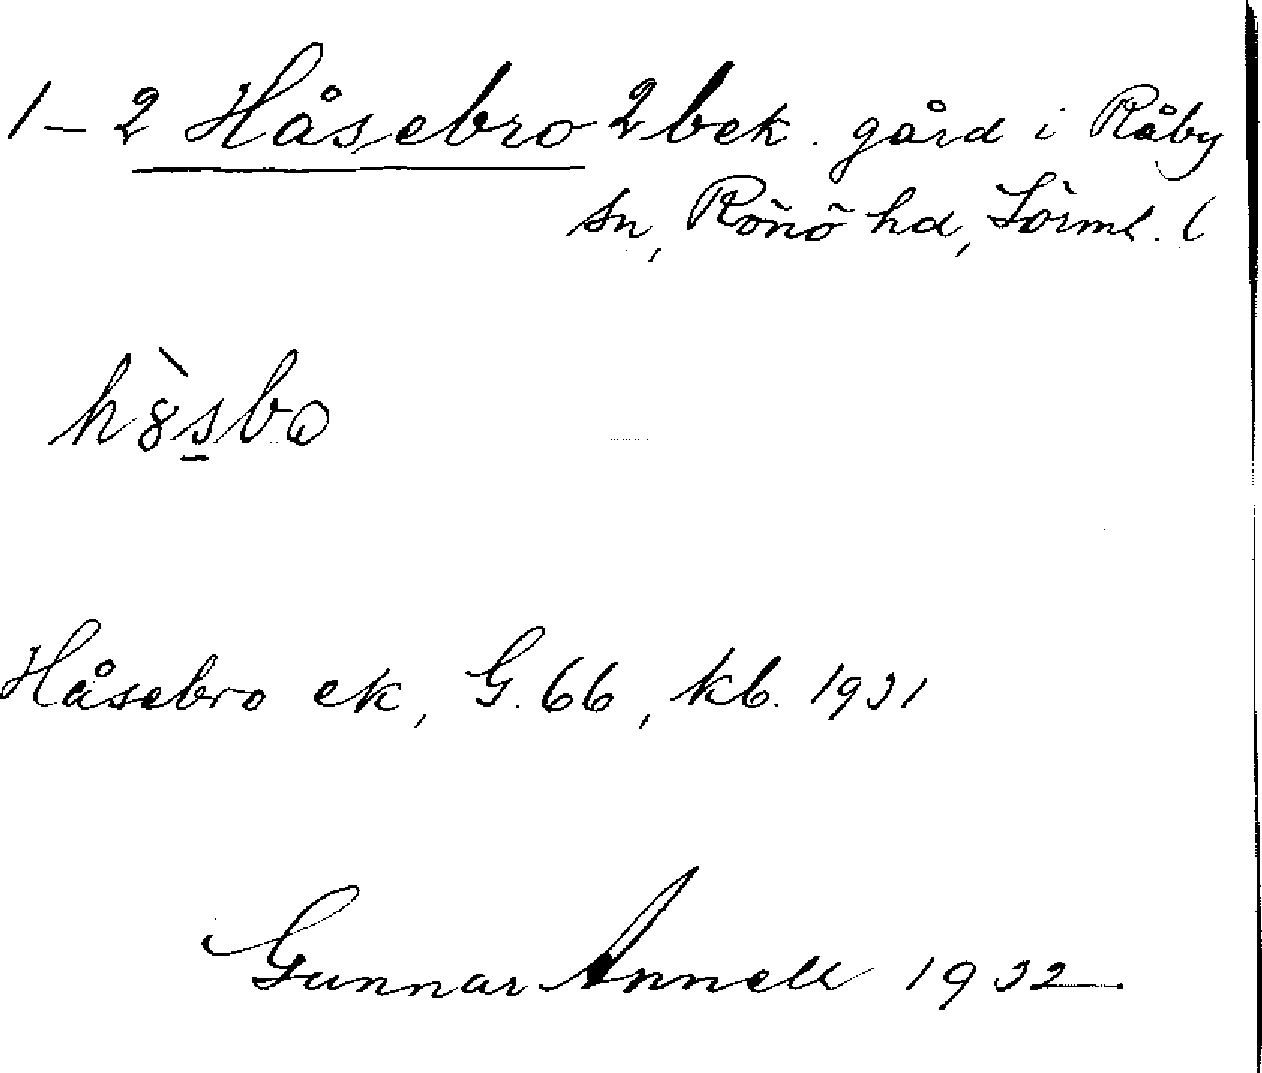 1-2 Håsebro 2 bek. gård i Råby
sn, Rönö hd, Sörml. l
Håsebro ek, G. 66, kb. 1931
Gunnar Annell 1932.